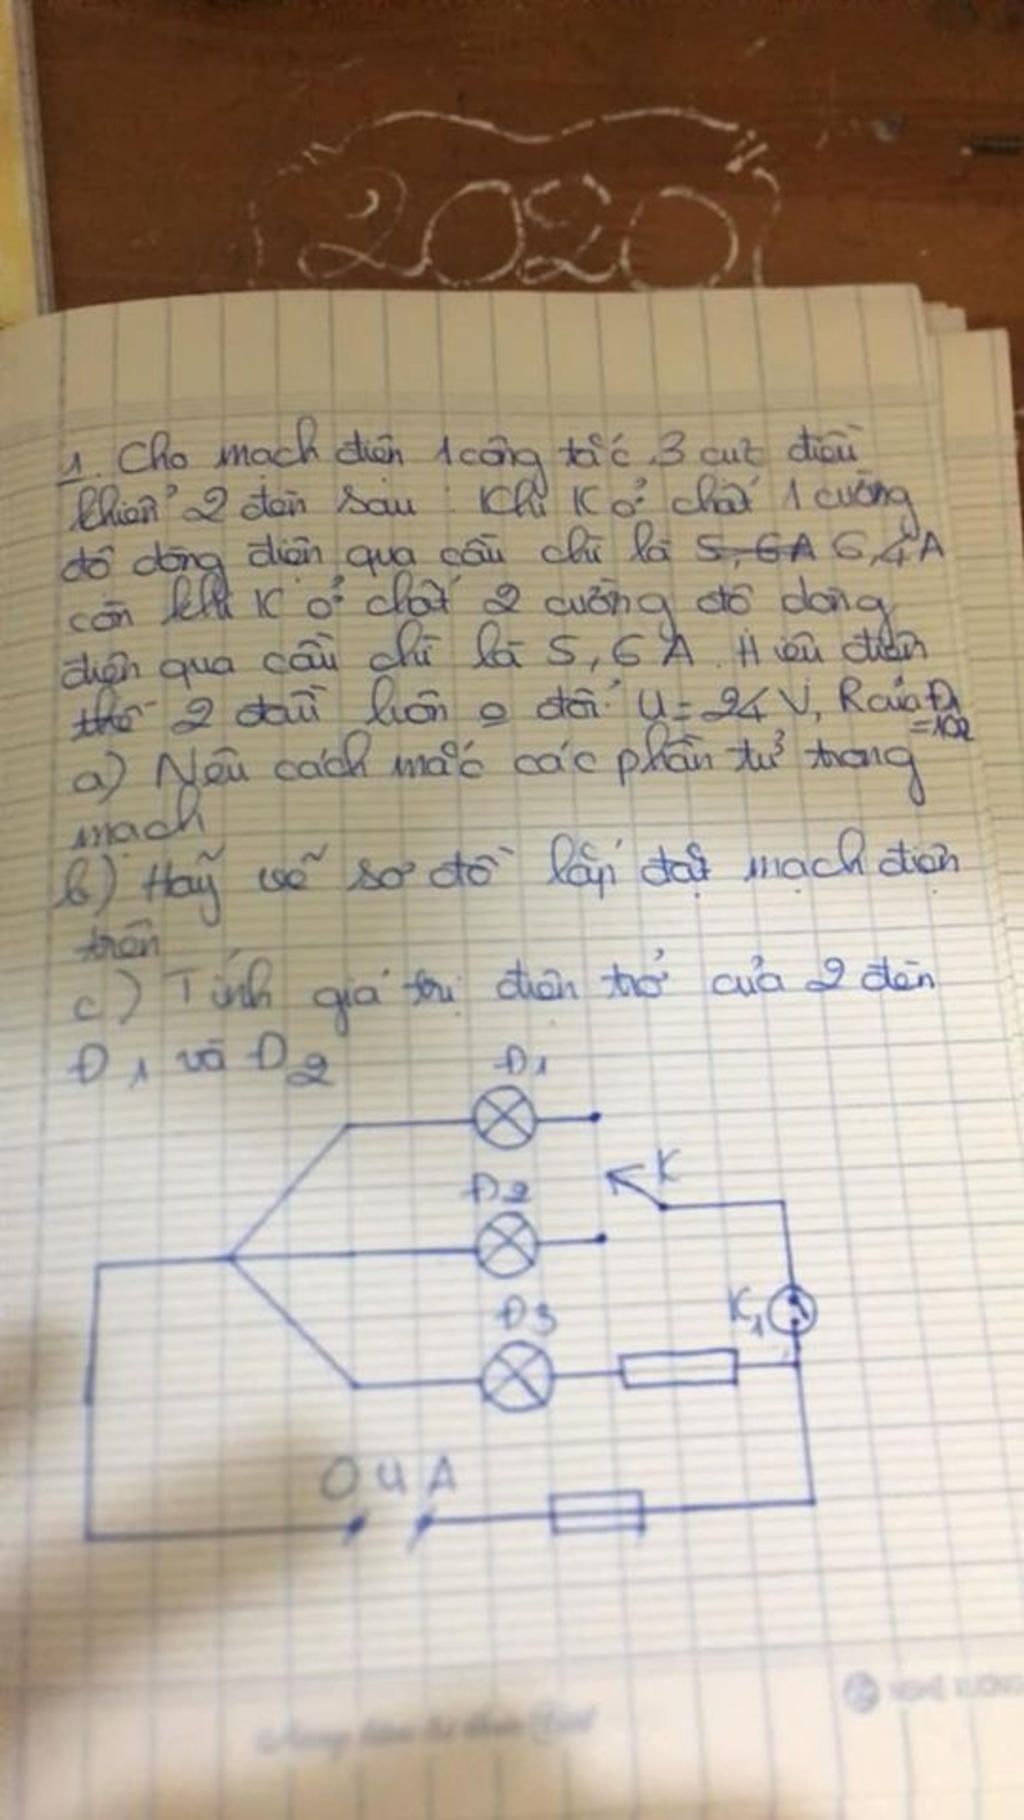 2020
1. Cho mạch điện 1 công tắc 3 cực điều
khiển 2 đèn sau : Khi K ở chốt 1 cường
độ dòng điện qua cầu chì là 5,6A 6,4A
còn khi K ở chốt 2 cường độ dòng
điện qua cầu chì là 5,6A. Hiệu điện
thế 2 đầu luôn o đổi U = 24V, R của Đ1
= 10Ω
a) Nêu cách mắc các phần tử trong
mạch
b) Hãy vẽ sơ đồ lắp đặt mạch điện
trên
c) Tính giá trị điện trở của 2 đèn
Đ1 và Đ2
Đ1
K
Đ2
K1
Đ3
O U A